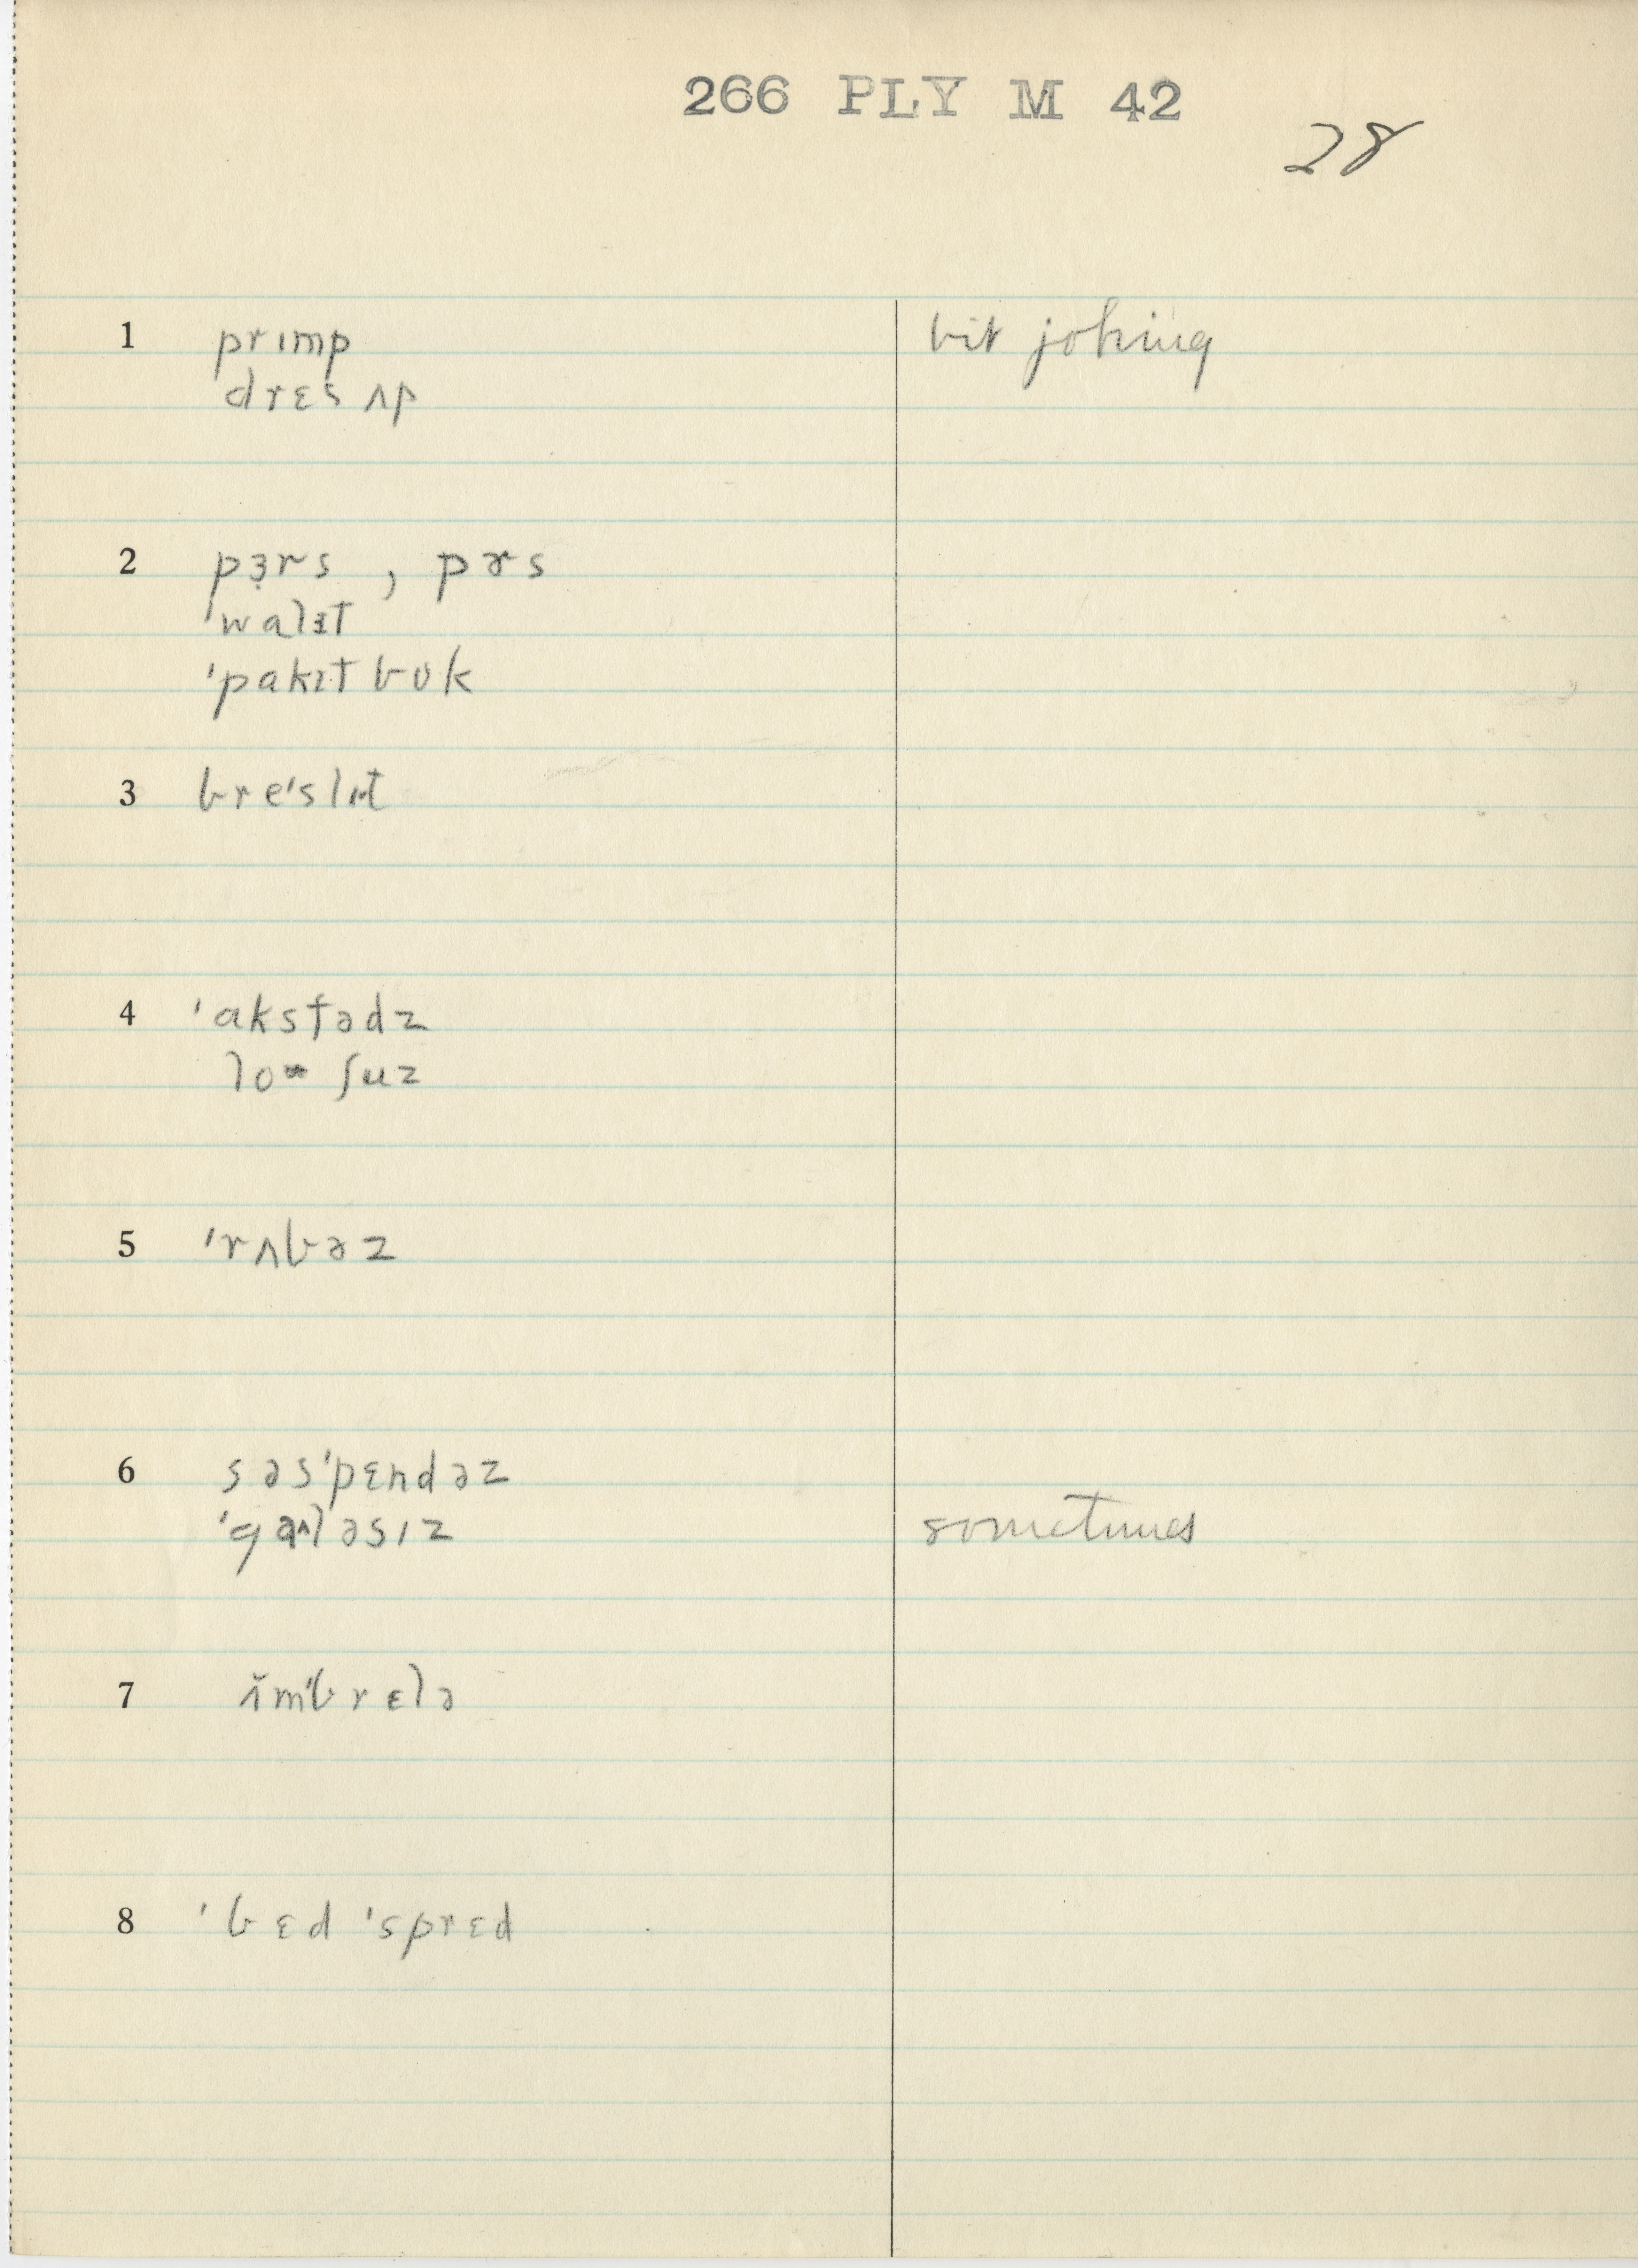 266 PLY M 42
28
1 prɪmp bit joking
drɛs ʌp
2 pɜ̣rs , pɚs
'walɪt
'pakɪt bʊk
3 bre'slɪt
4 'aksfədz
loʷ ʃuz
5 'rʌbəz
6 səs'pɛndəz
'galəsɪz sometimes
7 ʌ̆m'brɛlə
8 'bɛd 'sprɛd